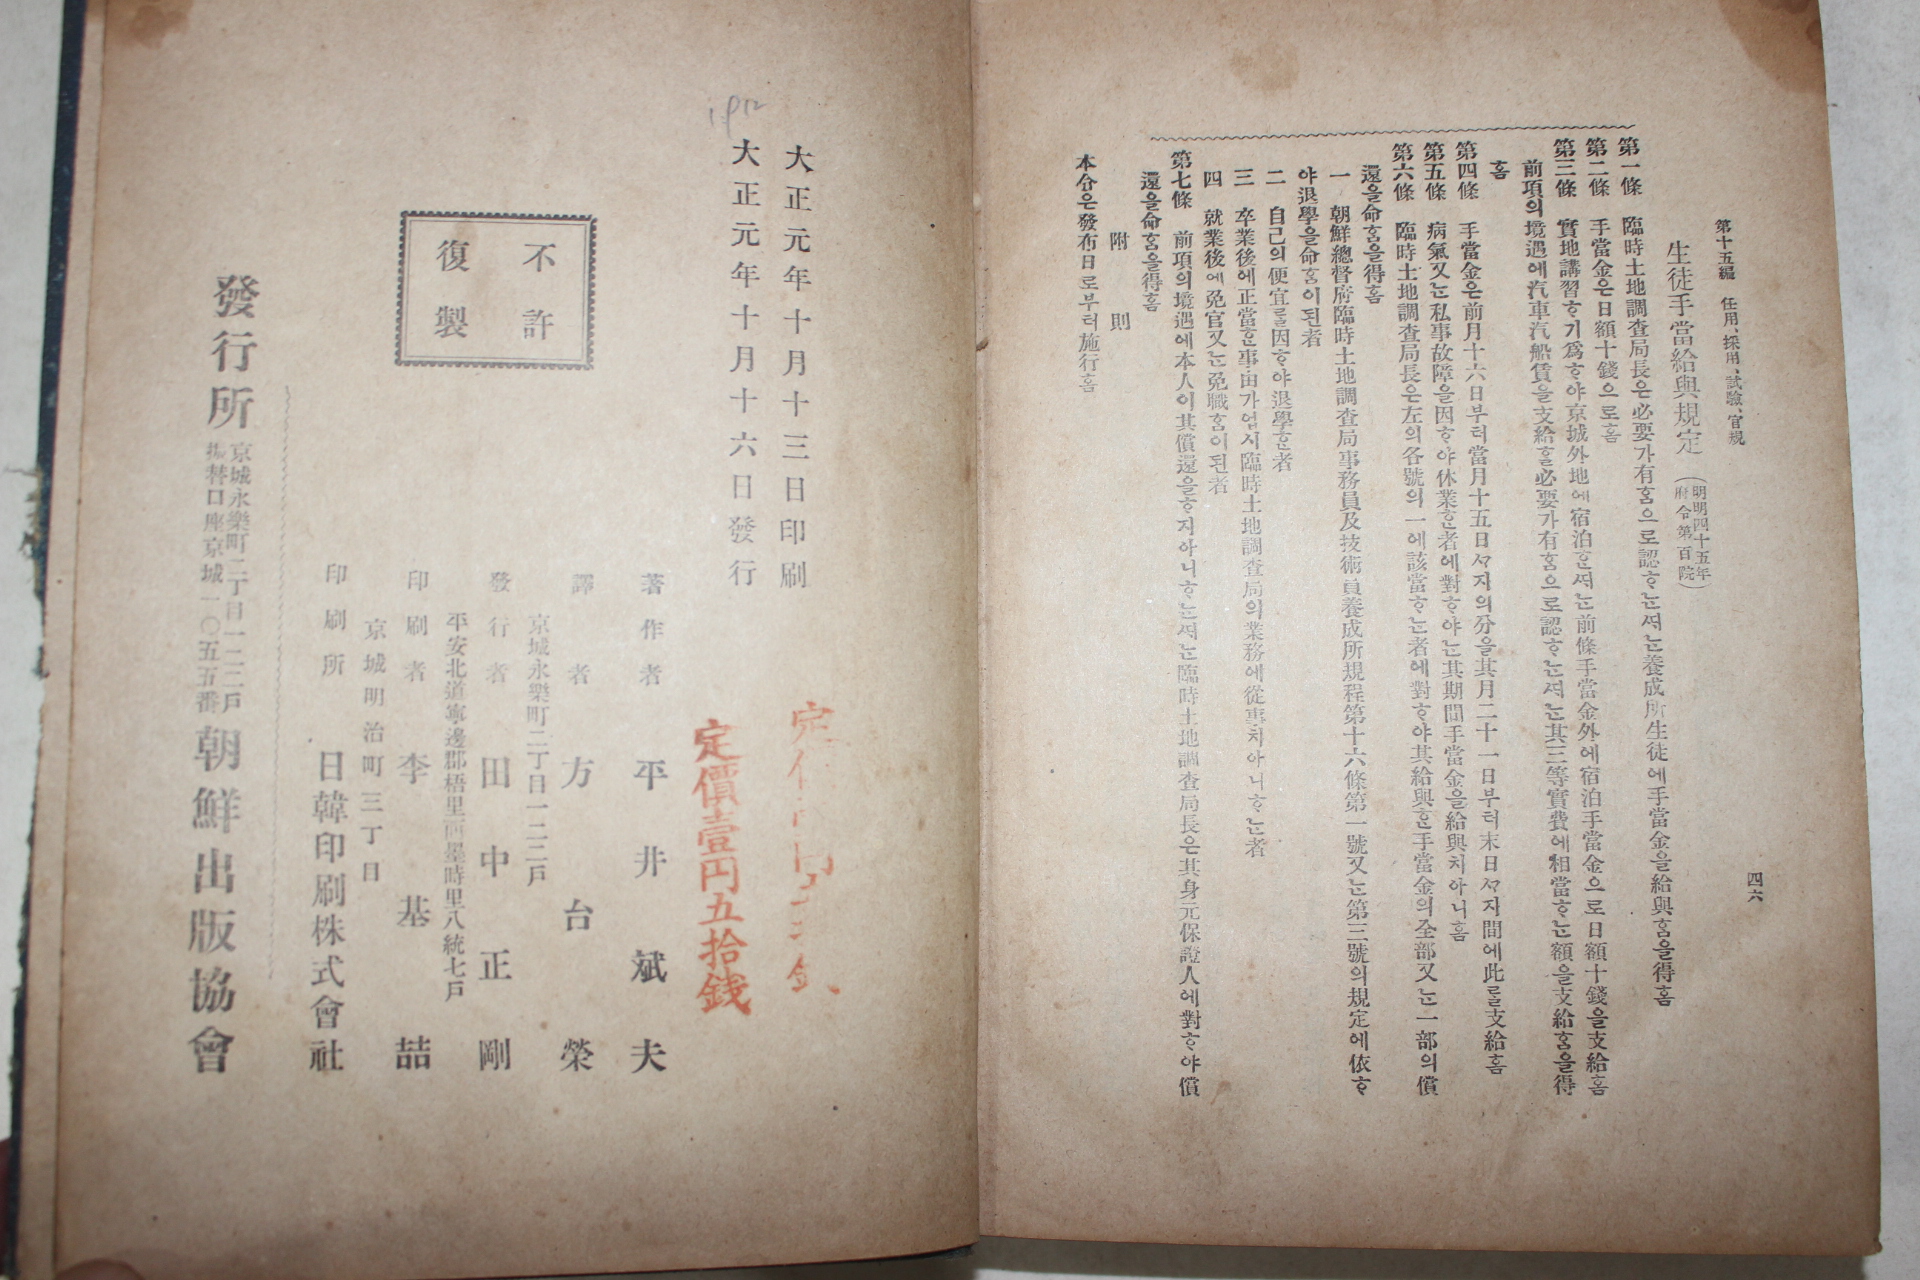 第十五編 任用、採用、試驗、官規
四六
生徒手當給與規定（明明四十五年府令第百院）
第一條 臨時土地調查局長은必要가有ᄒᆞᆷ으로認ᄒᆞᄂᆞᆫ셔ᄂᆞᆫ養成所生徒에手當金을給與ᄒᆞᆷ을得ᄒᆞᆷ
第二條 手當金은日額十錢으로ᄒᆞᆷ
第三條 實地講習ᄒᆞ기爲ᄒᆞ야京城外地에宿泊ᄒᆞᆫ셔ᄂᆞᆫ前條手當金外에宿泊手當金으로日額十錢을支給ᄒᆞᆷ
前項의境遇에汽車汽船賃을支給ᄒᆞᆯ必要가有ᄒᆞᆷ으로認ᄒᆞᄂᆞᆫ셔ᄂᆞᆫ其三等實費에相當ᄒᆞᄂᆞᆫ額을支給ᄒᆞᆷ을得
ᄒᆞᆷ
第四條 手當金은前月十六日부터當月十五日ᄭᆞ지의分을其月二十一日부터末日ᄭᆞ지間에此ᄅᆞᆯ支給ᄒᆞᆷ
第五條 病氣又ᄂᆞᆫ私事故障을因ᄒᆞ야休業ᄒᆞᆫ者에對ᄒᆞ야ᄂᆞᆫ其期間手當金을給與치아니ᄒᆞᆷ
第六條 臨時土地調查局長은左의各號의一에該當ᄒᆞᄂᆞᆫ者에對ᄒᆞ야其給與ᄒᆞᆫ手當金의全部又ᄂᆞᆫ一部의償
還을命ᄒᆞᆷ을得ᄒᆞᆷ
一 朝鮮總督府臨時土地調查局事務員及技術員養成所規程第十六條第一號又ᄂᆞᆫ第三號의規定에依ᄒᆞ
야退學을命ᄒᆞᆷ이된者
二 自己의便宜ᄅᆞᆯ因ᄒᆞ야退學ᄒᆞᆫ者
三 卒業後에正當ᄒᆞᆫ事由가업시臨時土地調查局의業務에從事치아니ᄒᆞᄂᆞᆫ者
四 就業後에免官又ᄂᆞᆫ免職ᄒᆞᆷ이된者
第七條 前項의境遇에本人이其償還을ᄒᆞ지아니ᄒᆞᄂᆞᆫ셔ᄂᆞᆫ臨時土地調查局長은其身元保證人에對ᄒᆞ야償
還을命ᄒᆞᆷ을得ᄒᆞᆷ
附則
本令은發布日로부터施行ᄒᆞᆷ
1912
大正元年十月十三日印刷
大正元年十月十六日發行
定價壹円五拾錢
不許復製
著作者 平井斌夫
譯者 方台榮
京城永樂町二丁目一二二戶
發行者 田中正剛
平安北道寧邊郡梧里面墨時里八統七戶
印刷者 李基喆
京城明治町三丁目
印刷所 日韓印刷株式會社
發行所 京城永樂町二丁目一二二戶 振替口座京城一〇五五番 朝鮮出版協會